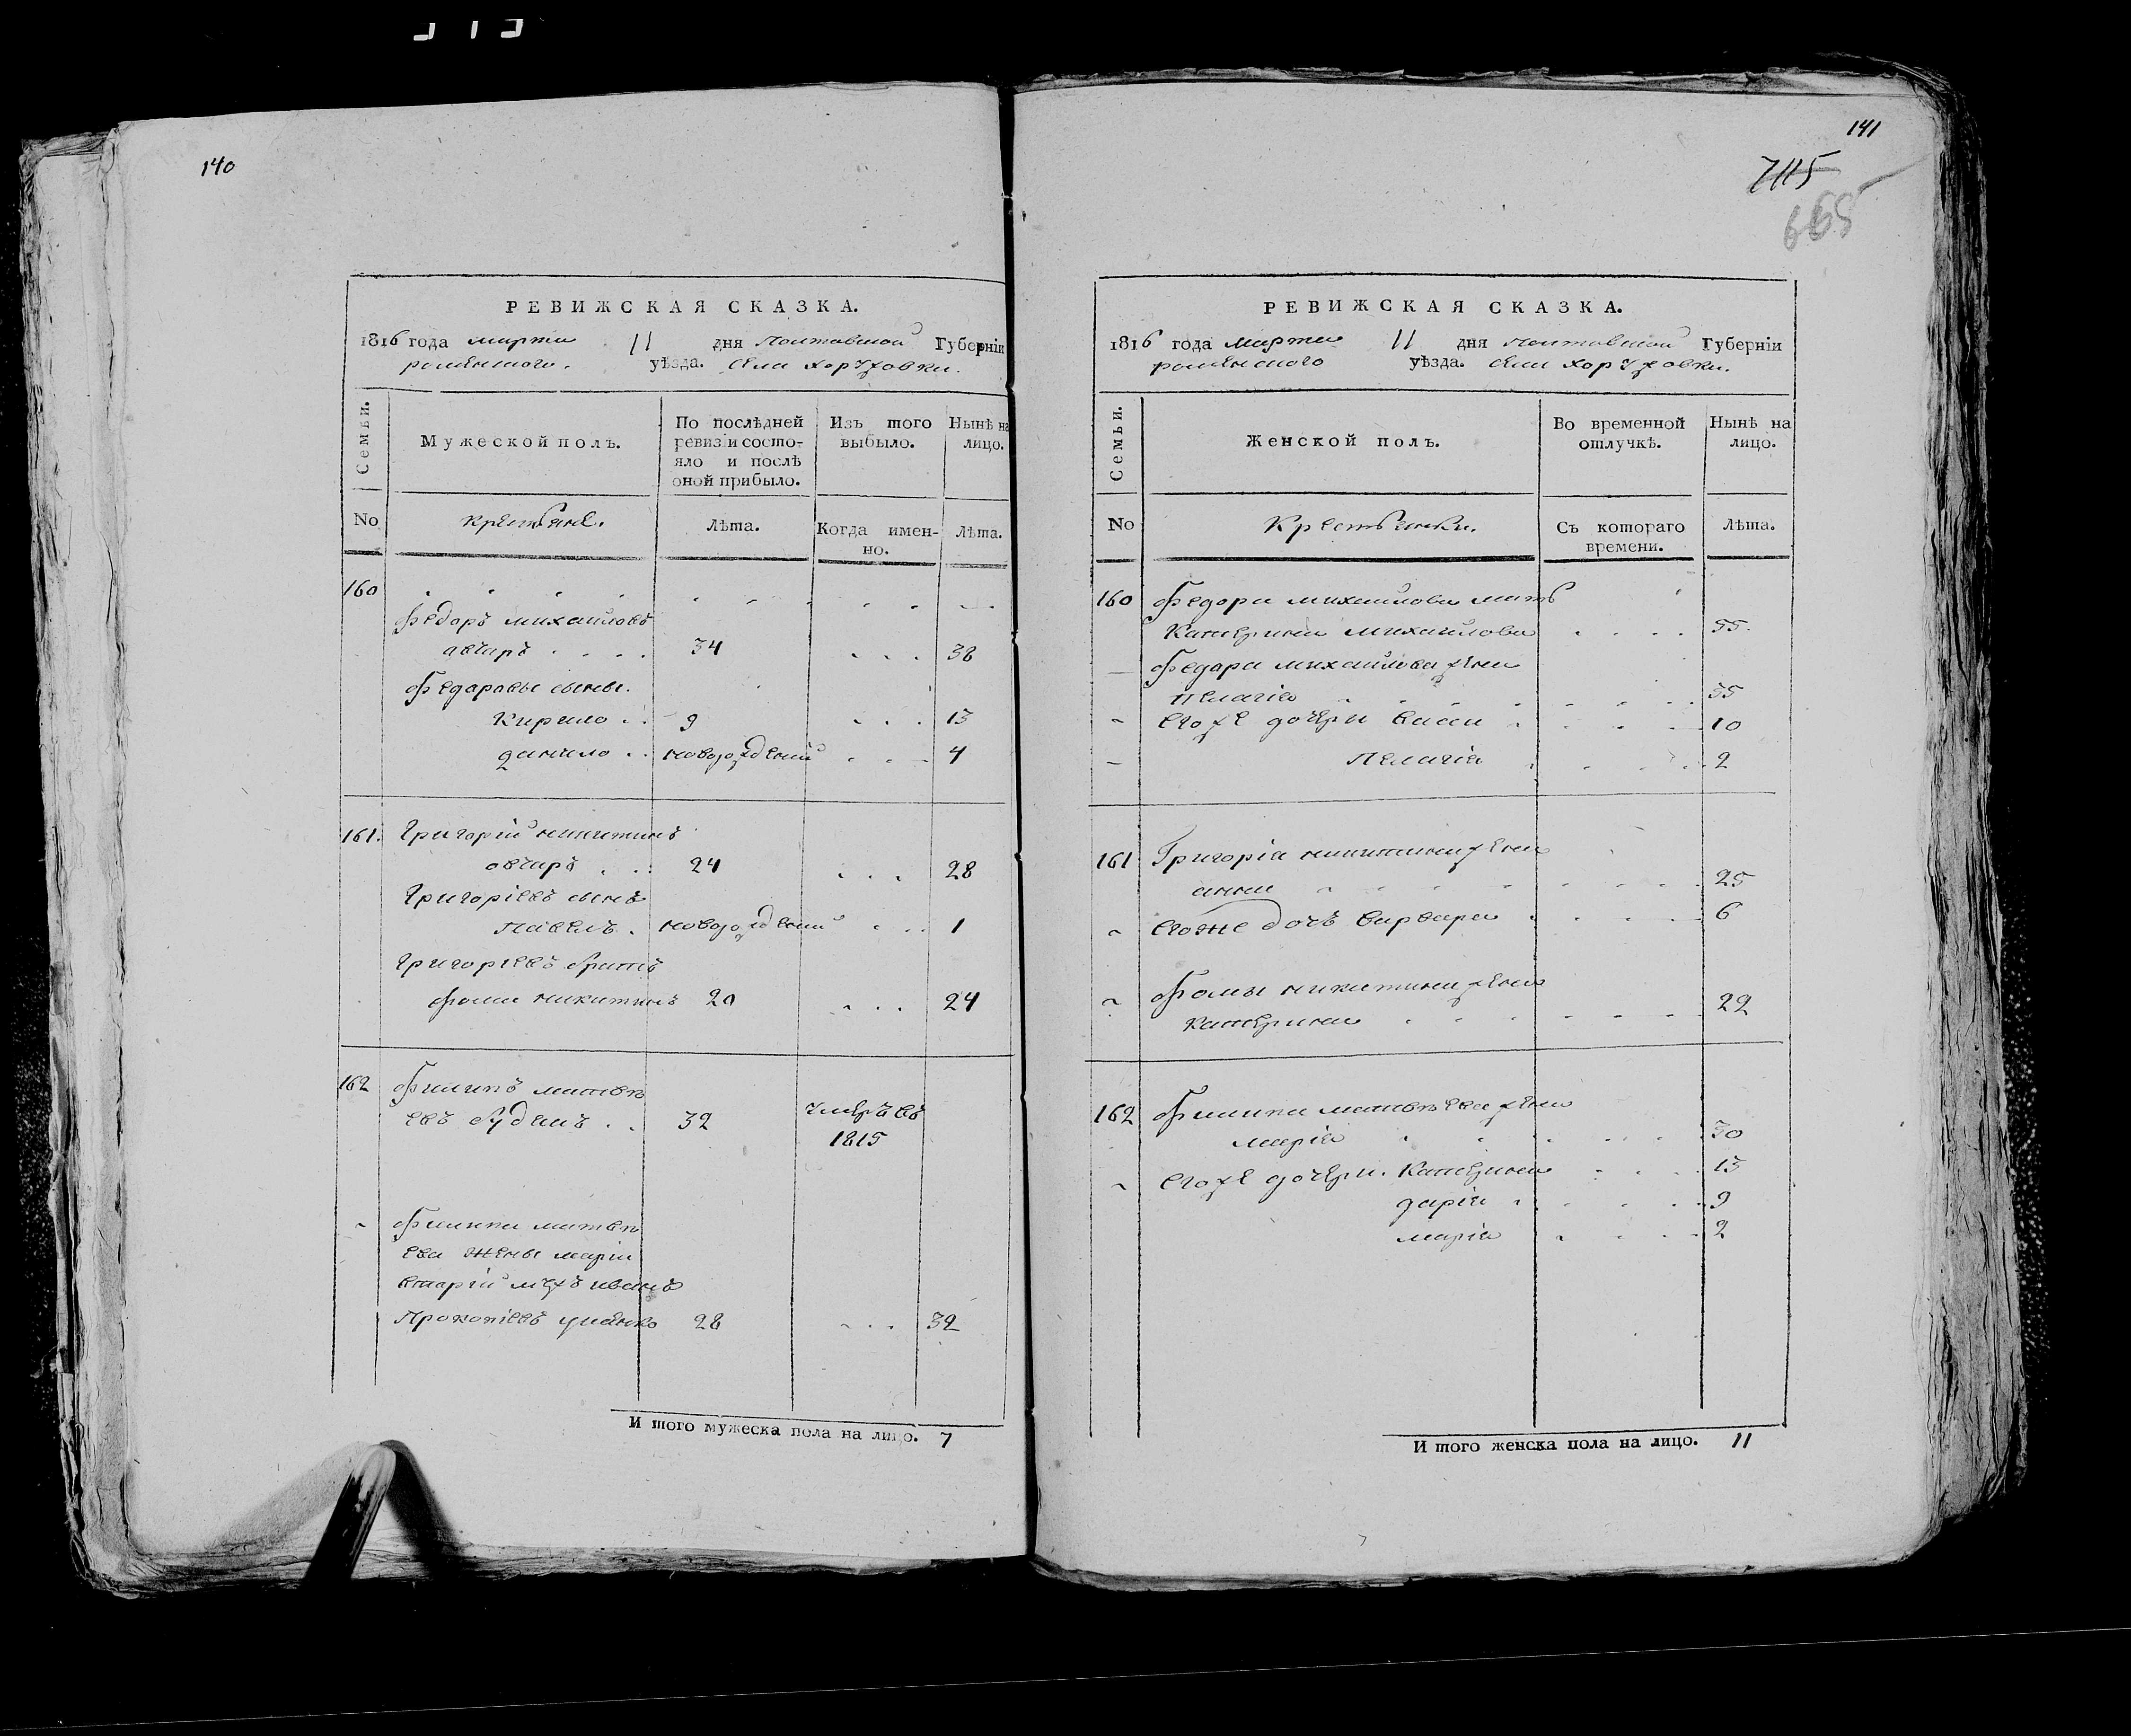 140
РЕВИЖСКАЯ СКАЗКА.
1816 года марта 11 дня Полтавской Губерніи
роменского. уѣзда. села хоружовки.
Семьи.
Мужеской полъ.
По послѣдней
ревизіи состо-
яло и послѣ
оной прибыло.
Изъ того
выбыло.
Нынѣ на
лицо.
No
крестьяне.
Лѣта.
Когда имен-
но.
Лѣта.
160
федоръ михайловъ
авчаръ 34 38
федаравы сыны.
Кирило 9 13
данило новорождений 4
161. Григорій никитинъ
овчаръ 24 28
Григоріевъ сынъ
Павелъ. новорождений 1
Григоріевъ братъ
фома никитинъ 20 24
162 филипъ матвѣ
евъ 32 умеръ въ
1815
филипа матвѣ
ева жены маріи
вторій мужъ иванъ
Прокопіевъ 28 32
И того мужеска пола на лицо. 7
141
715
665
РЕВИЖСКАЯ СКАЗКА.
1816 года марта 11 дня полтавской Губерніи
роменского уѣзда. села хоружовки.
Семьи.
Женской полъ.
Во временной
отлучкѣ.
Нынѣ на
лицо.
No
Крестьянки.
Съ котораго
времени.
Лѣта.
160 федора михайлова мать
Катерина михайлова 55.
федара михайлова жена
пелагія 35
егоже дочери васса 10
Пелагія 2
161 Григорія никитина жена
анна 25
егоже дочь варвара 6
фомы никитина жена
катерина 22
162 филипа матвѣева жена
марія 30
егоже дочери. Катерина 13
дарія 9
марія 2
И того женска пола на лицо. 11